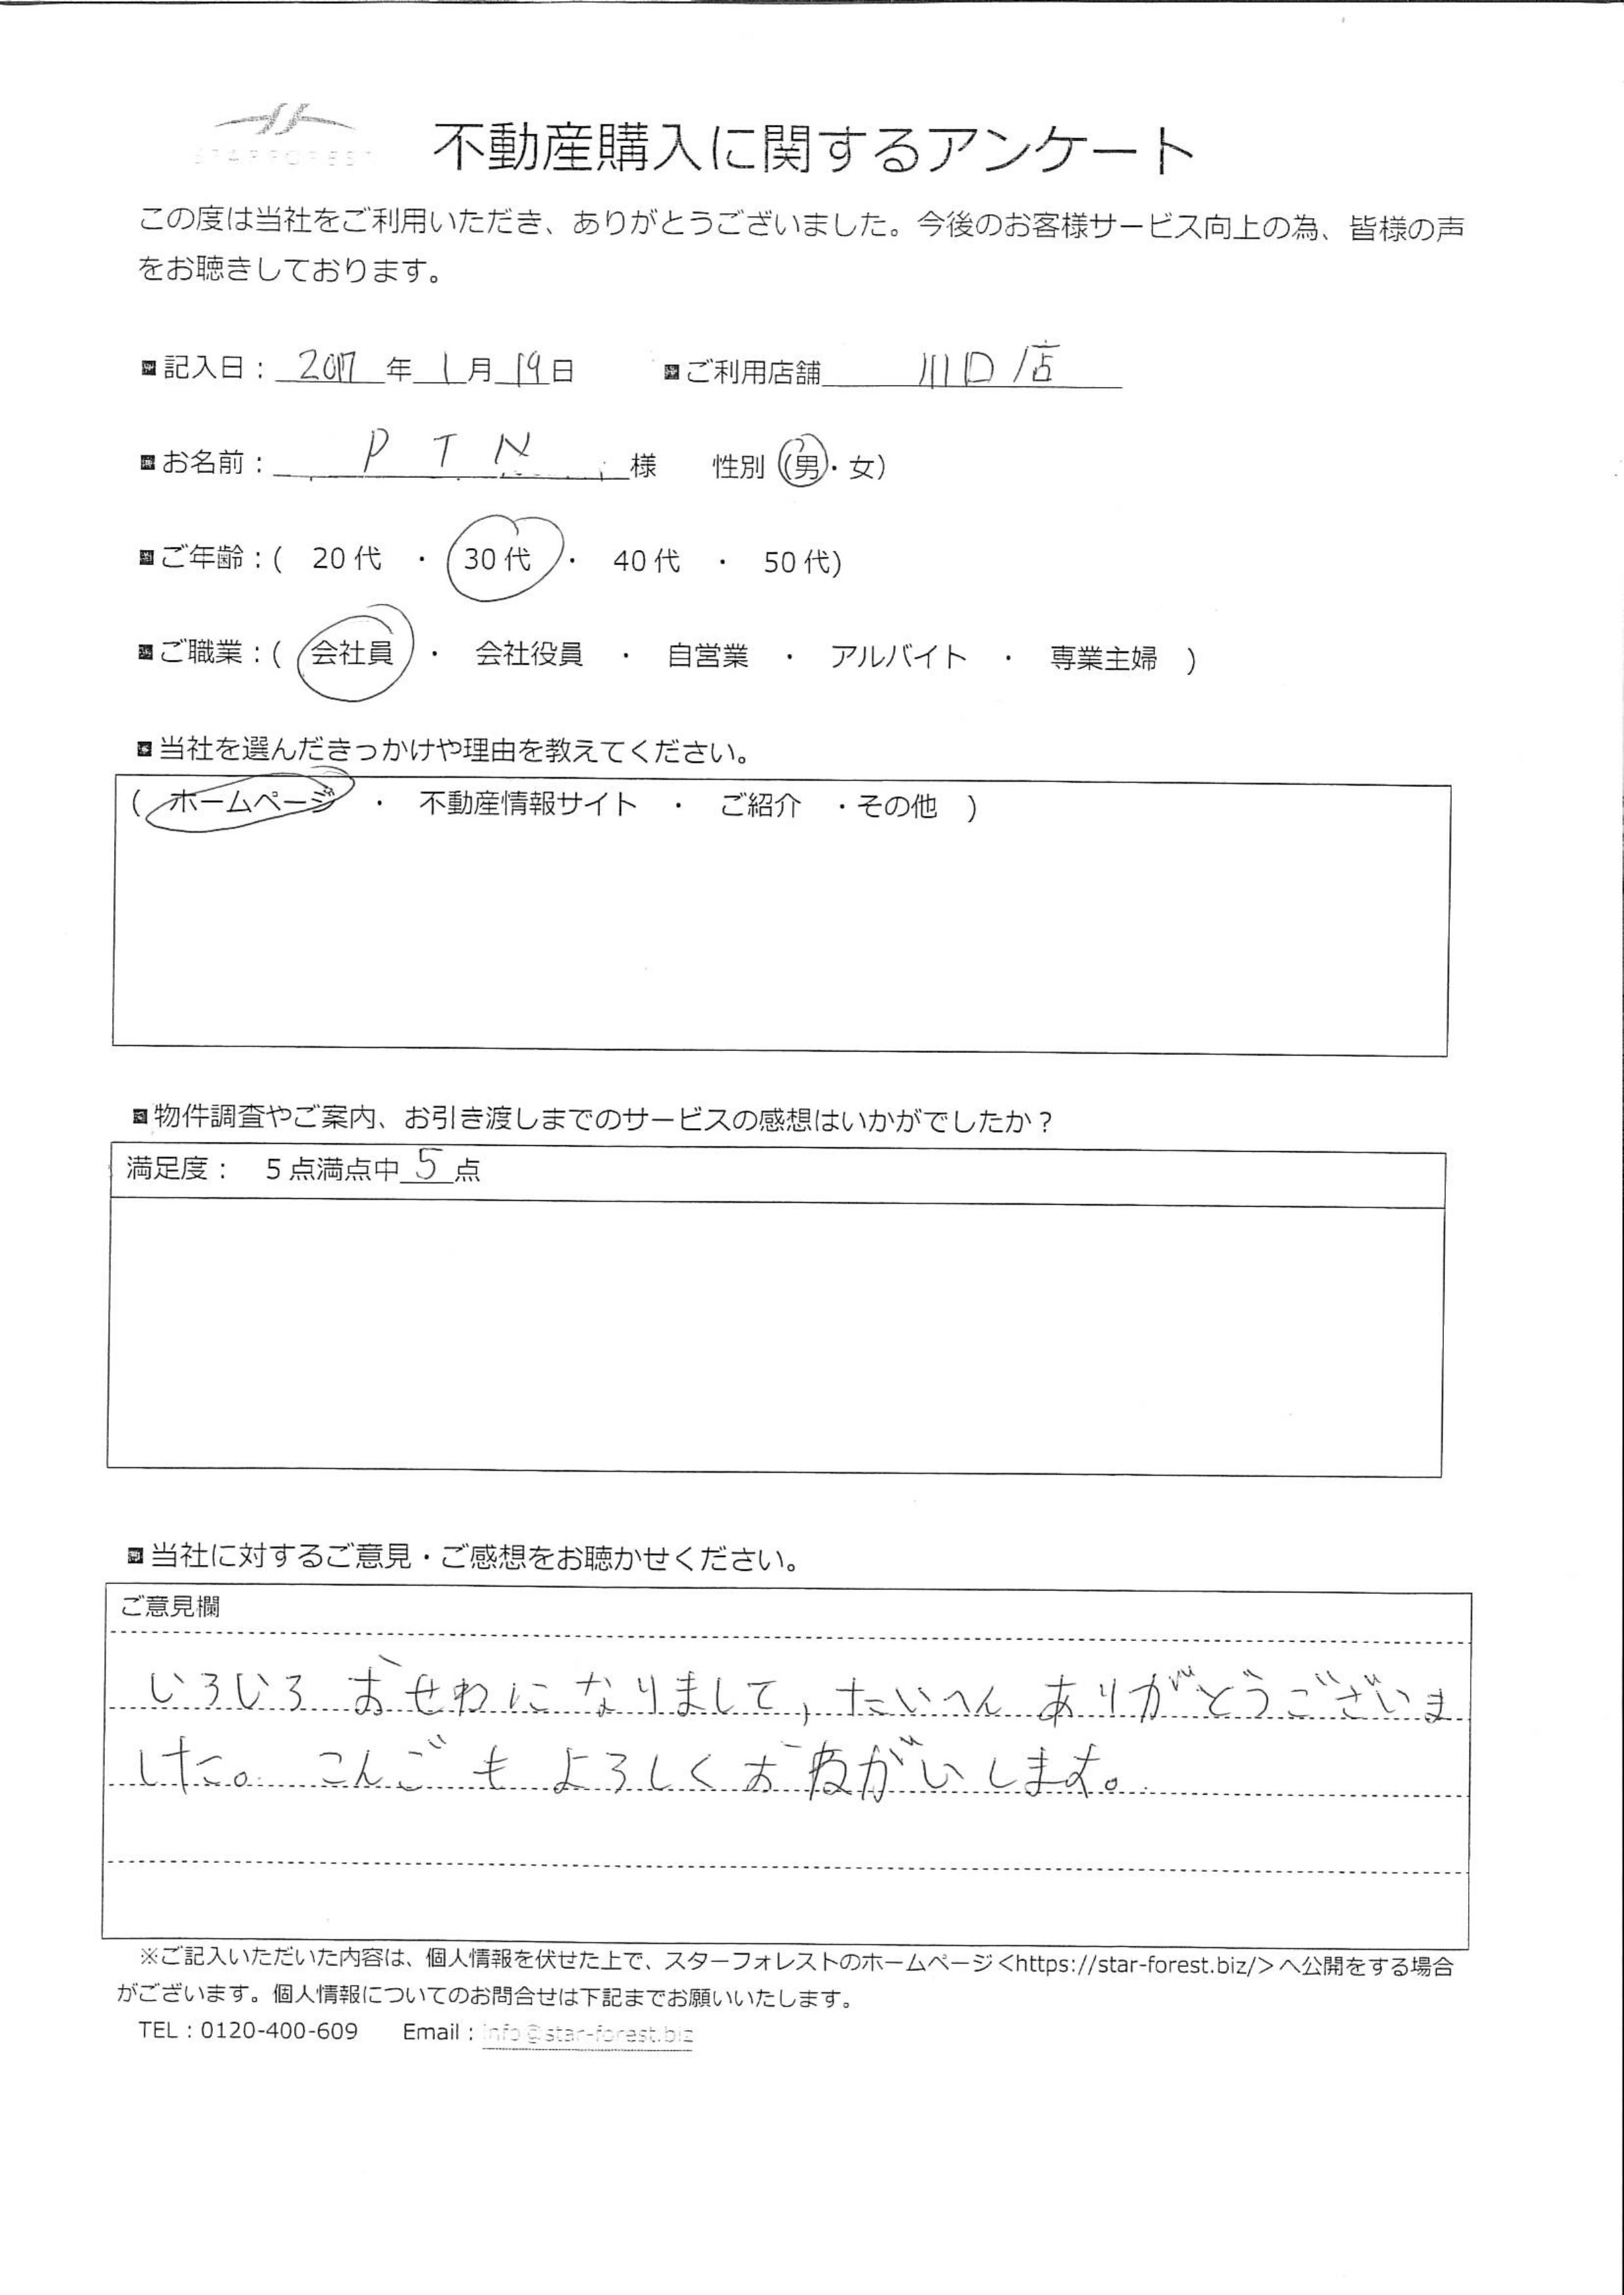 STAR FOREST
不動産購入に関するアンケート
この度は当社をご利用いただき、ありがとうございました。今後のお客様サービス向上の為、皆様の声
をお聴きしております。
■記入日：2017年1月19日 ■ご利用店舗 川口店
■お名前：P T N 様 性別（男・女）
■ご年齢：( 20代 ・ 30代 ・ 40代 ・ 50代)
■ご職業：( 会社員 ・ 会社役員 ・ 自営業 ・ アルバイト ・ 専業主婦 )
■当社を選んだきっかけや理由を教えてください。
( ホームページ ・ 不動産情報サイト ・ ご紹介 ・その他 )
■物件調査やご案内、お引き渡しまでのサービスの感想はいかがでしたか？
満足度： 5点満点中5点
■当社に対するご意見・ご感想をお聴かせください。
ご意見欄
いろいろ おせわに なりまして, たいへん ありがとうございま
した。こんごも よろしく おねがいします。
※ご記入いただいた内容は、個人情報を伏せた上で、スターフォレストのホームページ<https://star-forest.biz/>へ公開をする場合
がございます。個人情報についてのお問合せは下記までお願いいたします。
TEL：0120-400-609 Email：info@star-forest.biz